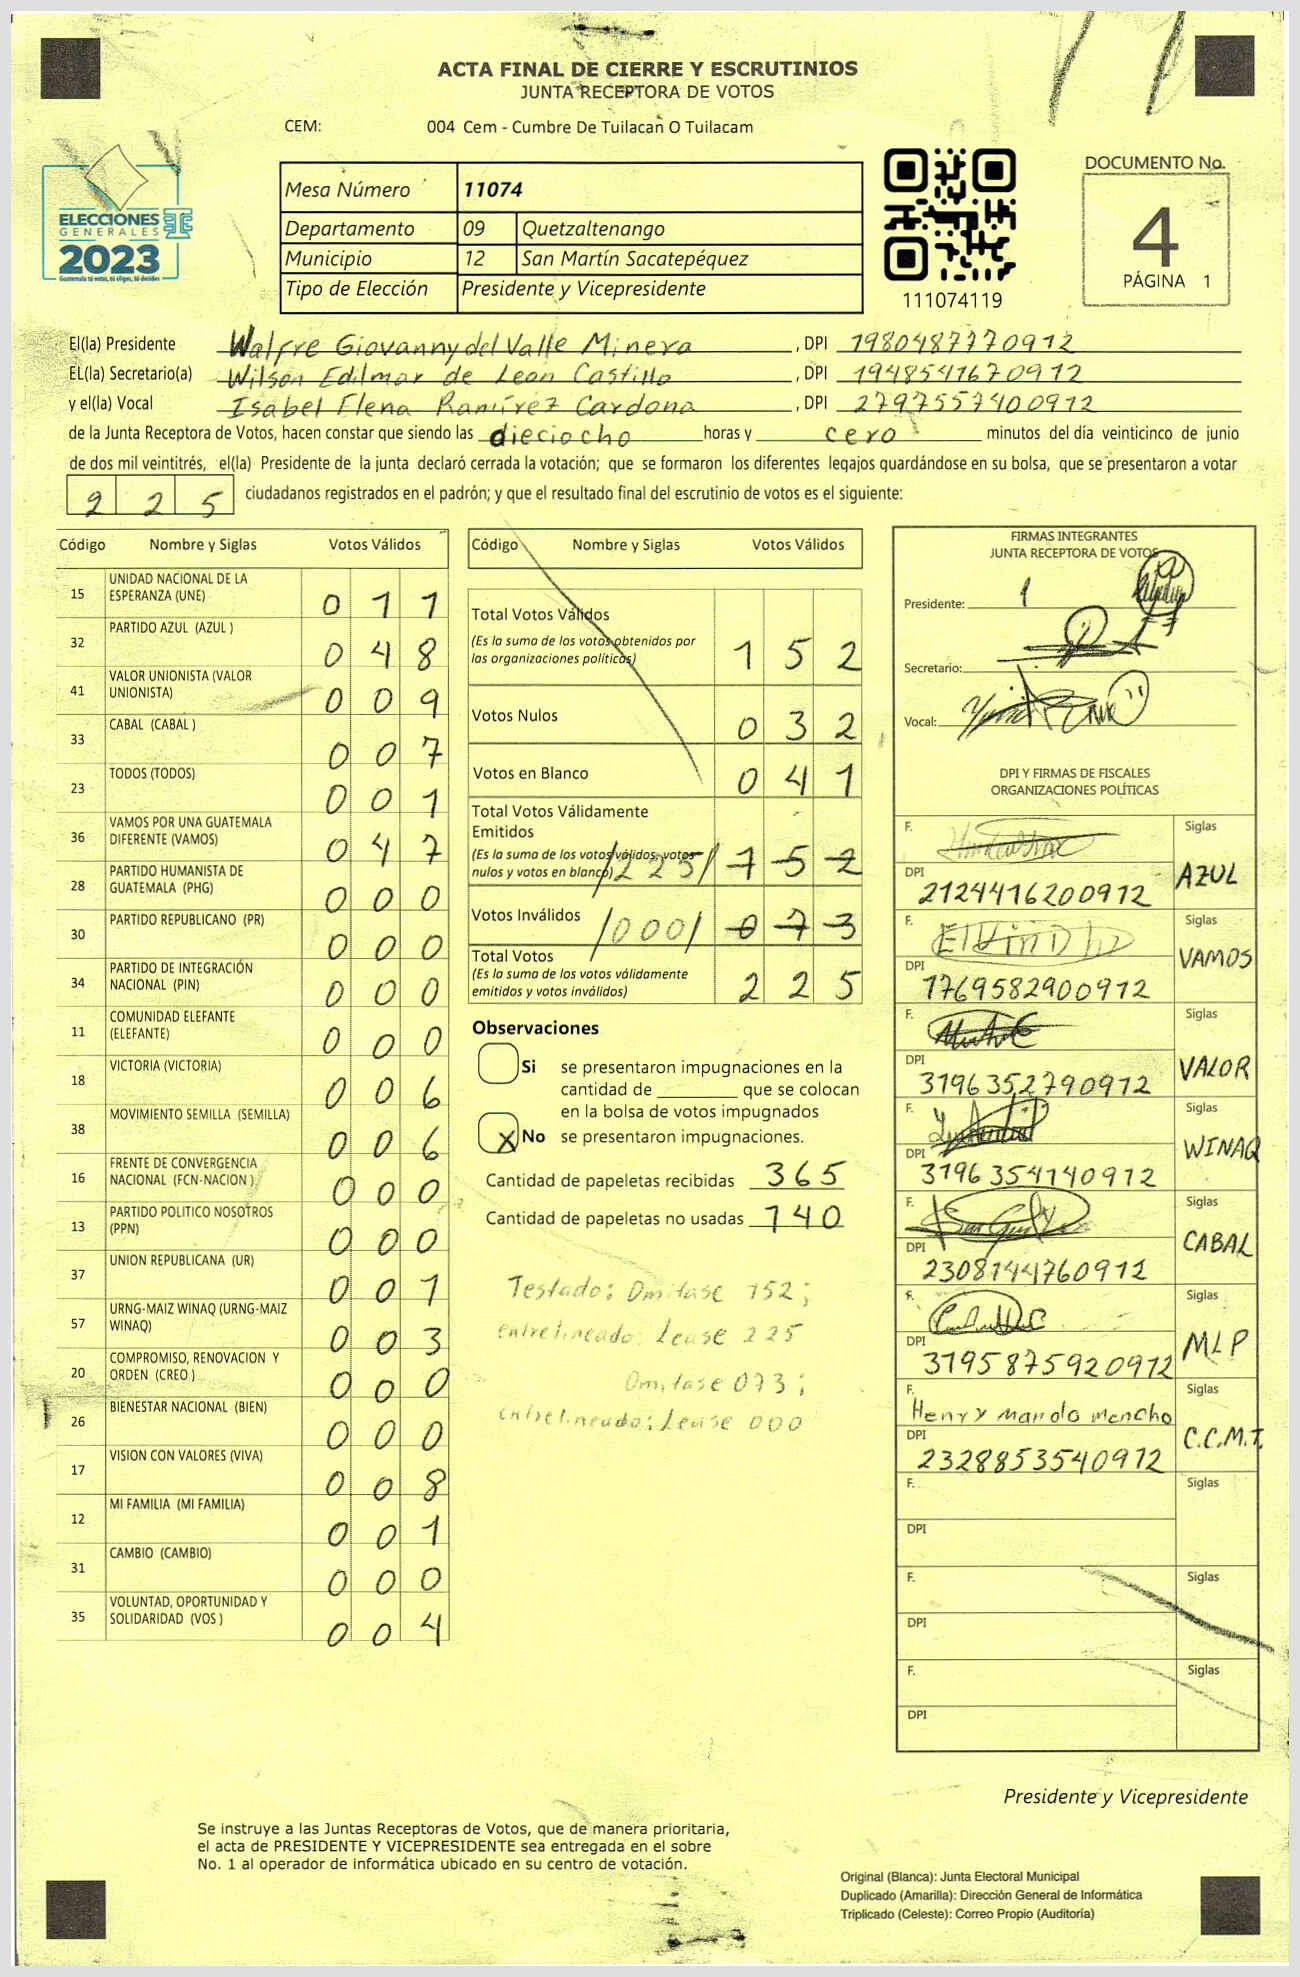 ACTA FINAL DE CIERRE Y ESCRUTINIOS
JUNTA RECEPTORA DE VOTOS
CEM: 004 Cem - Cumbre De Tuilacan O Tuilacam
ELECCIONES
GENERALES
2023
Guatemala tú votas, tú eliges, tú decides
Mesa Número 11074
Departamento 09 Quetzaltenango
Municipio 12 San Martín Sacatepéquez
Tipo de Elección Presidente y Vicepresidente
111074119
DOCUMENTO No.
4
PÁGINA 1
El(la) Presidente Walfre Giovanny del Valle Minera, DPI 1980487770912
EL(la) Secretario(a) Wilson Edilmar de Leon Castillo, DPI 1948541670912
y el(la) Vocal Isabel Elena Ramírez Cardona, DPI 2797557400912
de la Junta Receptora de Votos, hacen constar que siendo las dieciocho horas y cero minutos del día veinticinco de junio
de dos mil veintitrés, el(la) Presidente de la junta declaró cerrada la votación; que se formaron los diferentes legajos guardándose en su bolsa, que se presentaron a votar
225 ciudadanos registrados en el padrón; y que el resultado final del escrutinio de votos es el siguiente:
Código Nombre y Siglas Votos Válidos
15 UNIDAD NACIONAL DE LA ESPERANZA (UNE) 011
32 PARTIDO AZUL (AZUL ) 048
41 VALOR UNIONISTA (VALOR UNIONISTA) 009
33 CABAL (CABAL ) 007
23 TODOS (TODOS) 001
36 VAMOS POR UNA GUATEMALA DIFERENTE (VAMOS) 047
28 PARTIDO HUMANISTA DE GUATEMALA (PHG) 000
30 PARTIDO REPUBLICANO (PR) 000
34 PARTIDO DE INTEGRACIÓN NACIONAL (PIN) 000
11 COMUNIDAD ELEFANTE (ELEFANTE) 000
18 VICTORIA (VICTORIA) 006
38 MOVIMIENTO SEMILLA (SEMILLA) 006
16 FRENTE DE CONVERGENCIA NACIONAL (FCN-NACION ) 000
13 PARTIDO POLITICO NOSOTROS (PPN) 000
37 UNION REPUBLICANA (UR) 001
57 URNG-MAIZ WINAQ (URNG-MAIZ WINAQ) 003
20 COMPROMISO, RENOVACION Y ORDEN (CREO ) 000
26 BIENESTAR NACIONAL (BIEN) 000
17 VISION CON VALORES (VIVA) 008
12 MI FAMILIA (MI FAMILIA) 001
31 CAMBIO (CAMBIO) 000
35 VOLUNTAD, OPORTUNIDAD Y SOLIDARIDAD (VOS ) 004
Código Nombre y Siglas Votos Válidos
Total Votos Válidos 152
(Es la suma de los votos obtenidos por las organizaciones políticas)
Votos Nulos 032
Votos en Blanco 041
Total Votos Válidamente Emitidos
(Es la suma de los votos válidos, votos nulos y votos en blanco) /225/ 152
Votos Inválidos /000/ 073
Total Votos
(Es la suma de los votos válidamente emitidos y votos inválidos) 225
Observaciones
Si se presentaron impugnaciones en la
cantidad de ________ que se colocan
en la bolsa de votos impugnados
X No se presentaron impugnaciones.
Cantidad de papeletas recibidas 365
Cantidad de papeletas no usadas 140
Testado: Omitase 152;
entrelineado: Lease 225
Omitase 073;
entrelineado: Lease 000
FIRMAS INTEGRANTES
JUNTA RECEPTORA DE VOTOS
Presidente:
Secretario:
Vocal:
DPI Y FIRMAS DE FISCALES
ORGANIZACIONES POLÍTICAS
F. Siglas
DPI 2124416200912 AZUL
F. Siglas
DPI 1769582900912 VAMOS
F. Siglas
DPI 3196352790912 VALOR
F. Siglas
DPI 3196354140912 WINAQ
F. Siglas
DPI 2308144760912 CABAL
F. Siglas
DPI 3195875920912 MLP
F. Henry Mardo Mencho Siglas
DPI 2328853540912 C.C.M.T.
F. Siglas
DPI
F. Siglas
DPI
F. Siglas
DPI
Presidente y Vicepresidente
Se instruye a las Juntas Receptoras de Votos, que de manera prioritaria,
el acta de PRESIDENTE Y VICEPRESIDENTE sea entregada en el sobre
No. 1 al operador de informática ubicado en su centro de votación.
Original (Blanca): Junta Electoral Municipal
Duplicado (Amarilla): Dirección General de Informática
Triplicado (Celeste): Correo Propio (Auditoría)